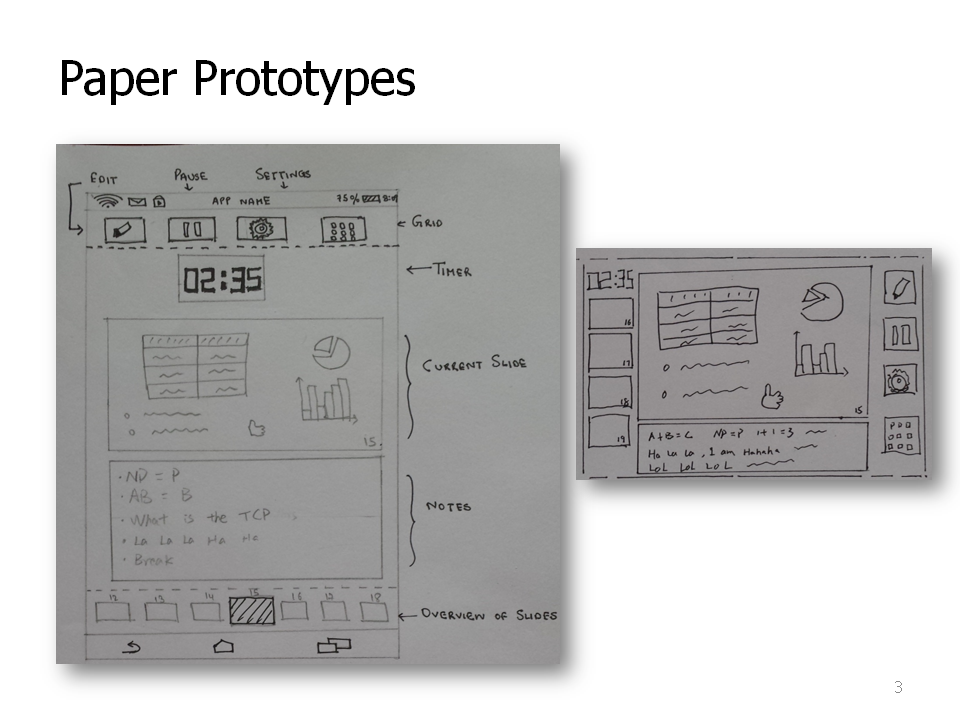 Paper Prototypes
EDIT PAUSE SETTINGS
APP NAME 75%
GRID
02:35
TIMER
CURRENT SLIDE
15.
• NP = P
• AB = B
• What is the TCP
• La La La Ha Ha
• Break
NOTES
12 13 14 15 16
18
OVERVIEW OF SLIDES
02:35
16
17
18
19
15
A+B=C NP=P 1+1=3
Ha La La, I am Hahaha
LOL LOL LOL
3